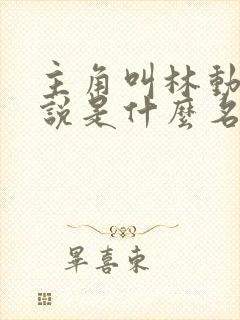 主角叫林動
說是什麼名
畢喜東